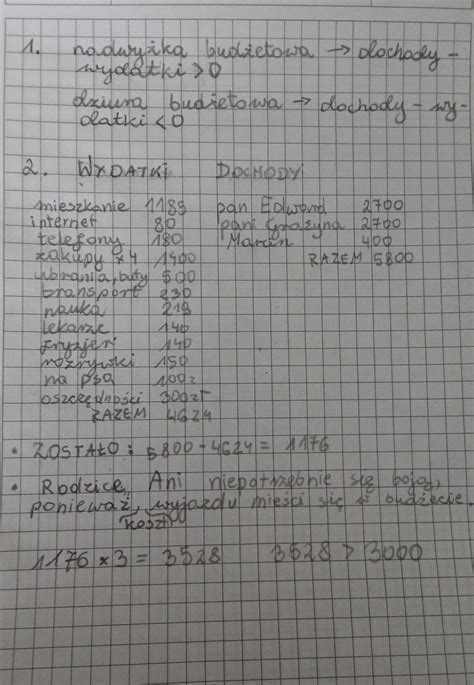 1. nadwyżka budżetowa → dochody -
wydatki > 0
dziura budżetowa → dochody - wy-
datki < 0
2. WYDATKI DOCHODY
mieszkanie 1185 pan Edward 2700
internet 80 pani Grażyna 2700
telefony 180 Marcin 400
zakupy x 4 1400 RAZEM 5800
ubrania, buty 500
transport 230
nauka 219
lekarze 140
fryzjeri 140
rozrywki 150
na psa 100z
oszczędności 300zł
RAZEM 4624
• ZOSTAŁO: 5800 - 4624 = 1176
• Rodzice Ani niepotrzebnie się boją,
ponieważ, wyjazdu mieści się w budżecie.
koszt
1176 x 3 = 3528 3528 > 3000